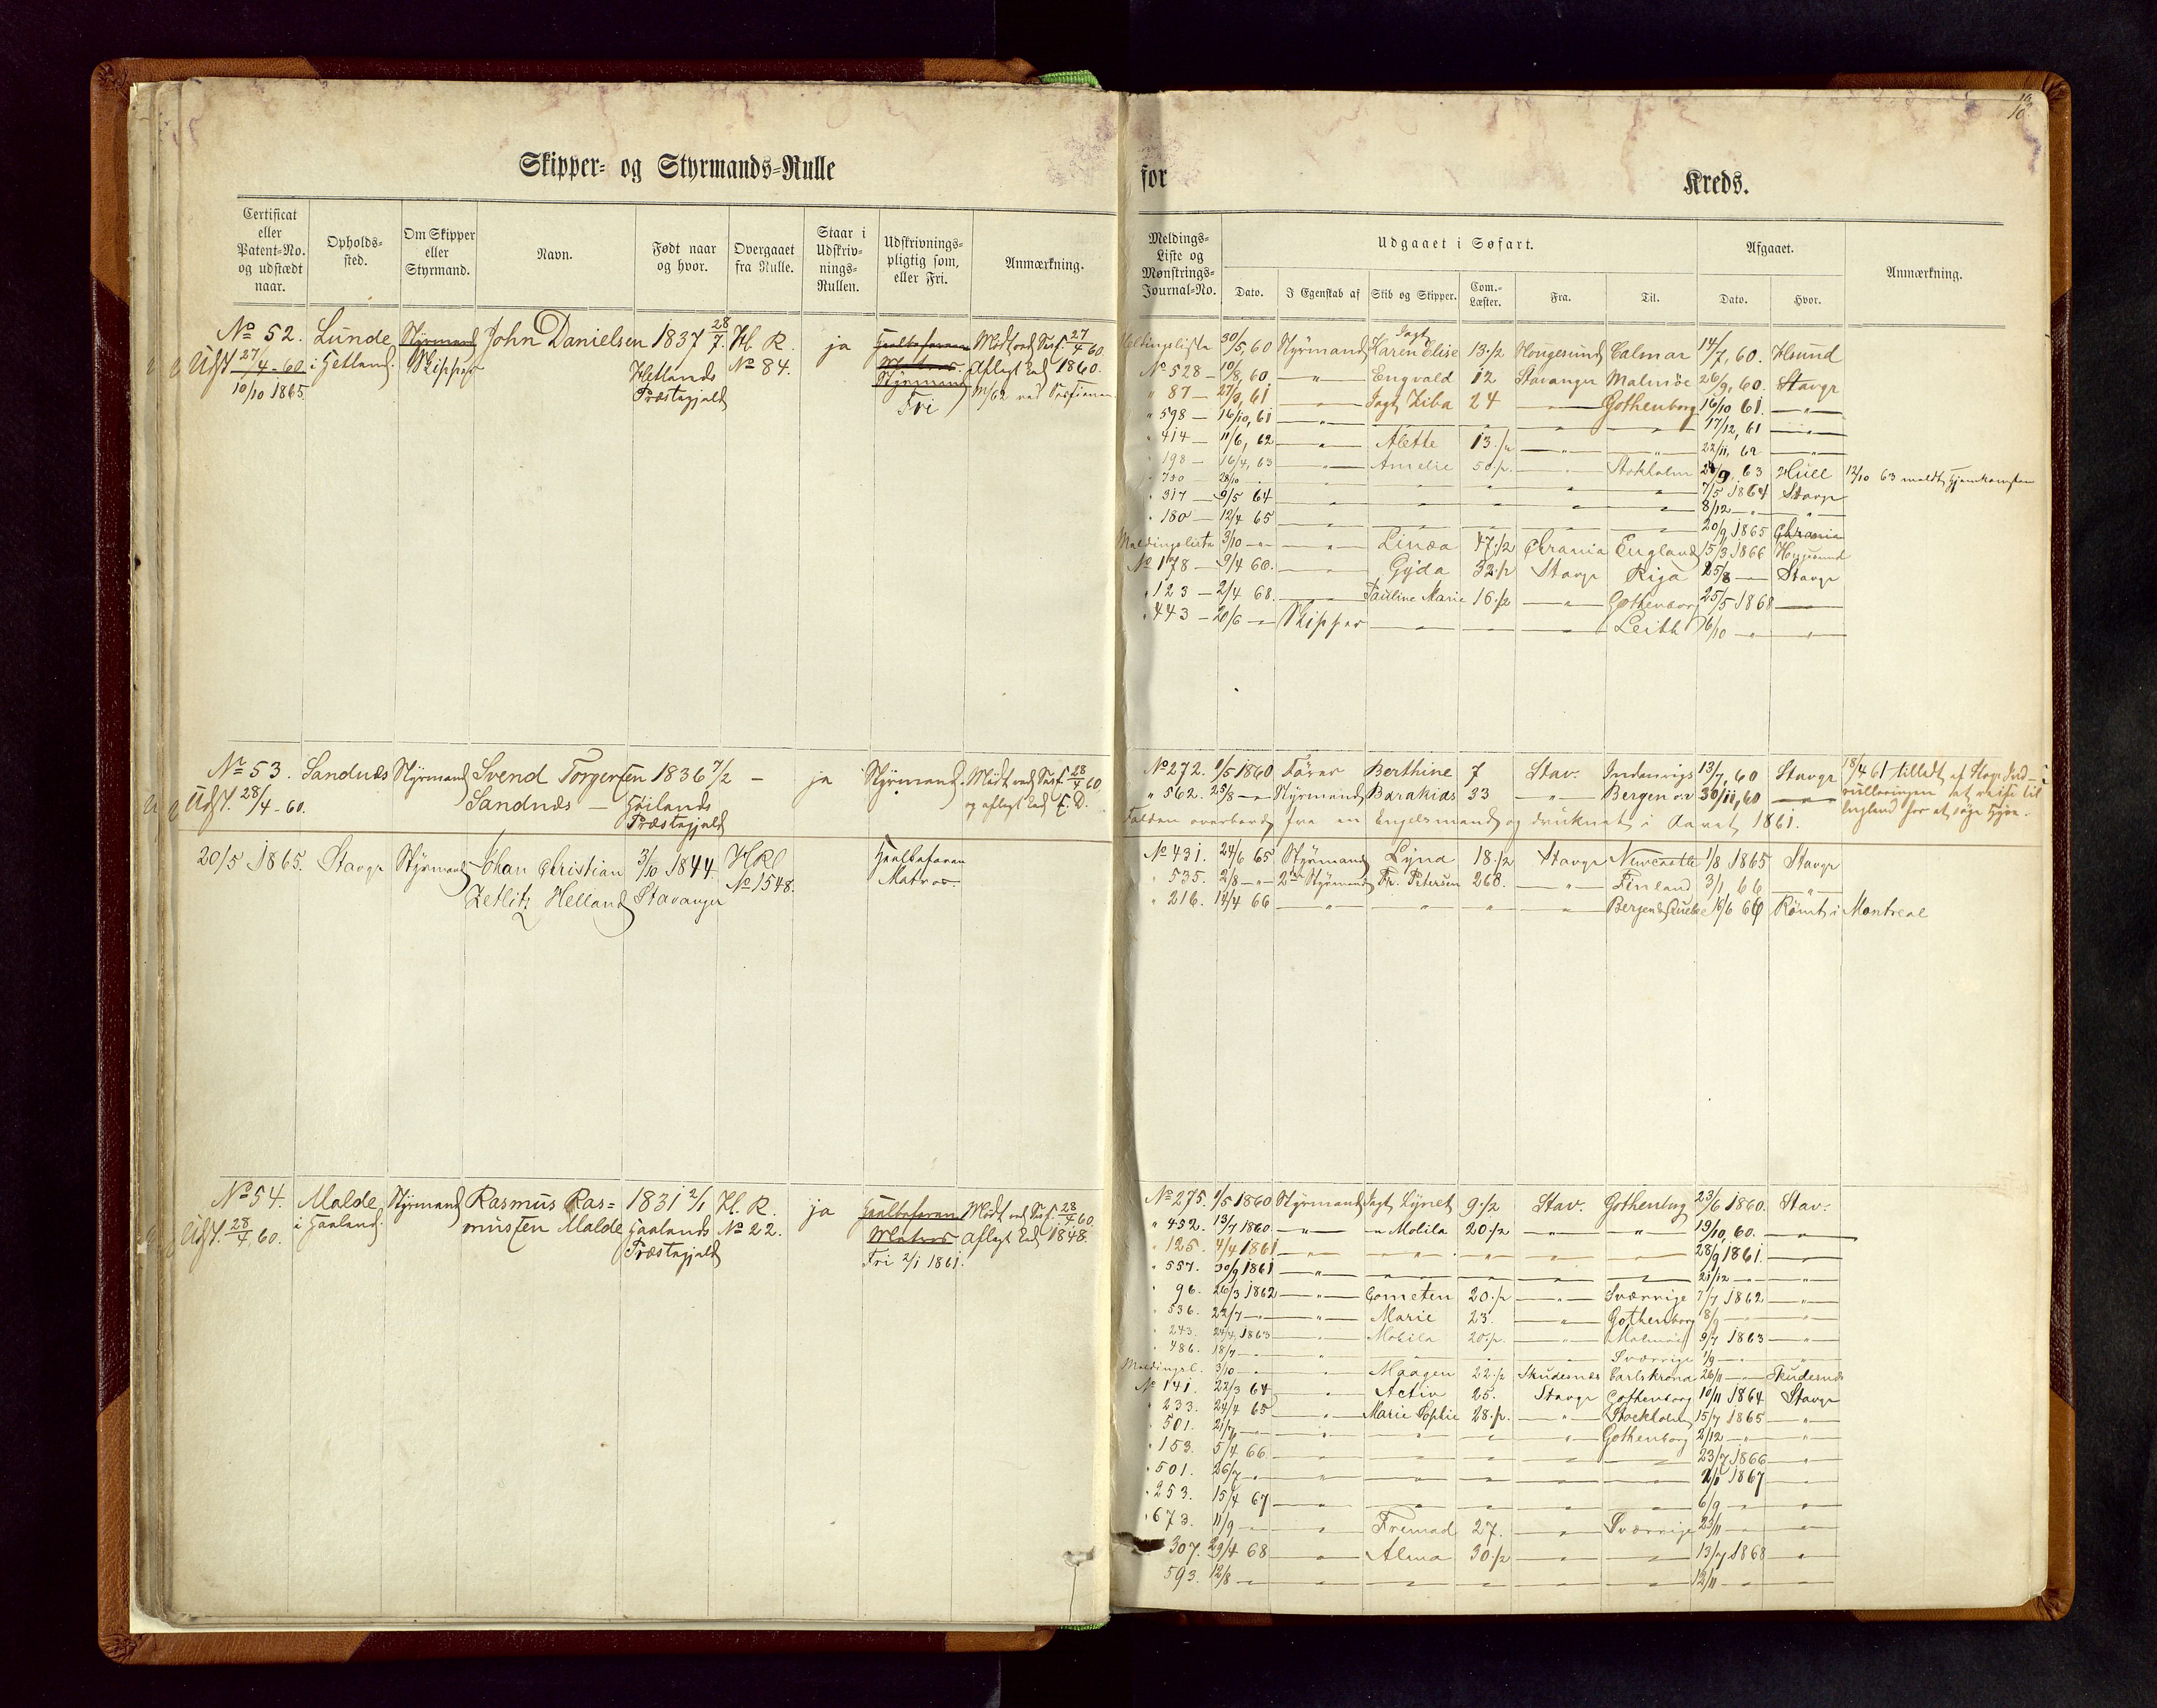 10
10
Skipper- og Styrmands-Rulle
for
Kreds.
Certificat eller Patent-No. og udstædt naar.
Opholds-sted.
Om Skipper eller Styrmand.
Navn.
Født naar og hvor.
Overgaaet fra Rulle.
Staar i Udskriv-nings-Rullen.
Udskrivnings-pligtig som, eller Fri.
Anmærkning.
Meldings-Liste og Mønstrings-Journal-No.
Udgaaet i Søfart.
Dato.
I Egenskab af
Skib og Skipper.
Com.-Læster.
Fra.
Til.
Afgaaet.
Dato.
Hvor.
Anmærkning.
No 52. Lunde Styrmand John Danielsen 1837 28/7. Hl. R. ja Mødt ved Sess. 27/4 60
Udst 27/4-60. i Hetland. Skipper Hetlands No 84. Matros. Aflagt Ed 1860.
10/10 1865. Præstegjeld Styrmand
Fri
Meldingsliste 30/5, 60 Styrmand Jagt Karen Elise 13 1/2 Hougesund Calmar 14/7, 60. Hsund
No 528 - 10/8, 60 - " - Engvald 12 Stavanger Malmöe 26/9, 60. Stavgr
" 87 - 27/3, 61 - Jagt Ziba 24 - " - Gothenborg 16/10 61. - " -
" 598 - 16/10, 61 - " - 17/12, 61 - " -
" 414 - 11/6, 62 - " - Alette 13 1/2 - " - 22/11, 62 "
" 198 - 16/4, 63 - " - Amelie 50 1/2 - " - Stokholm 63 Hull 12/10 63 meldt Hjemkomsten
" 750 - 28/10 - 7/5 1864 Stavgr
" 317 - 9/5 64 - 8/12 - " - "
" 180 - 12/4 65 - 20/9 1865 Chrania
Meldingsliste 3/10 - " - Linea 47 1/2 Chrania England 15/3 1866 Hougesund
No 178 - 9/4 60. - " - Gyda 32 1/2 Stavgr Riga 25/8 - Stavgr
" 123 - 2/4 68. - Pauline Marie 16 1/2 - " - Gothenborg 25/5 1868 -
" 443 - 20/6 - " Skipper - " - Leith 6/10 - " - " -
No 53. Sandnæs Styrmand Svend Torgersen 1836 7/2 - ja Styrmand. Mødt ved Sess. 28/4 60.
Udst. 28/4-60. Sandnæs - Høilands og aflagt Ed s. D.
Præstegjeld
No 272. 1/5 1860 Fører Berthine 7 Stav. Indenrigs 13/7, 60 Stavgr 18/4 61 tilladt af Stavgr Ind-
" 562. 25/8 - " Styrmand Barakias 33 - " - Bergen o.v 30/11, 60 - " - rulleringen at reise til
England for at søge Hyre.
Falden overbord fra en Engelsmand og druknet i Aaret 1861.
20/5 1865. Stavgr Styrmand Johan Christian 3/10 1844 Hl. Rl Hvalbefaren
Zetlitz Helland Stavanger No 1548. Matros.
No 431. 24/6 65 Styrmand Lyna 18 1/2 Stavgr Newcastle 1/8 1865 Stavgr
" 535. 2/8 - " - 2den Styrmand Fr. Petersen 268. - " - Finland 3/1, 66 - " -
" 216. 14/4 66 - " - Bergen & Quebec 16/6 66 Rømt i Montreal
No 54. Malde Styrmand Rasmus Ras= 1831 2/1 Hl. R. ja Mødt ved Sess. 28/4 60.
Udst. 28/4, 60. i Haaland. mussen Malde Haalands No 22. Matros Aflagt Ed 1848.
Præstegjeld Fri 2/1 1861.
No 275. 1/5 1860 Styrmand Jagt Lynet 9 1/2 Stav. Gothenbrg 23/6 1860. Stav.
" 452. 13/7 1860. - " - " Molila 20 1/2 - " - " 19/10, 60. - " -
" 125. 4/4 1861 - " - 28/9 1861. - " -
" 557. 30/9 1861 - " - 21/12 - " - "
" 96. 26/3 1862 - " - Cometen 20 1/2 - " - Sværrige 7/7 1862 - " -
" 536. 22/7 - " - Marie 23. - " - Gothenborg 8/9 - " -
" 243. 24/4, 1863 - " - Mobila 20 1/2. - " - Malmøe 9/7 1863 - " -
" 486. 18/7 - " - Sværrige 1/9 - " -
Meldingsl. 3/10 - " - Maagen 22 1/2 Skudesnes Carlskrona 26/11 - " - Skudesnes
No 141. 22/3 64 - " - Activ 25. Stavgr Gothenborg 10/11 1864 Stavgr
" 233. 24/4 65 - " - Marie Sophie 28 1/2. - " - Stockholm 15/7 1865 - " -
" 501. 21/7 - " - Gothenborg 2/12 - " - "
" 153. 5/4 66 - " - 23/7 1866 - " -
" 501. 26/7 - " - 1867 - " -
" 253. 15/4 67 - " - 6/9 - " -
" 673. 11/9 - " - Fremad 27. - " - Sværrige 23/11 - " -
307. 29/4 68 - " - Alma 30 1/2 - " - 13/7 1868 - " -
593. 12/8 - " - 12/11 - " -